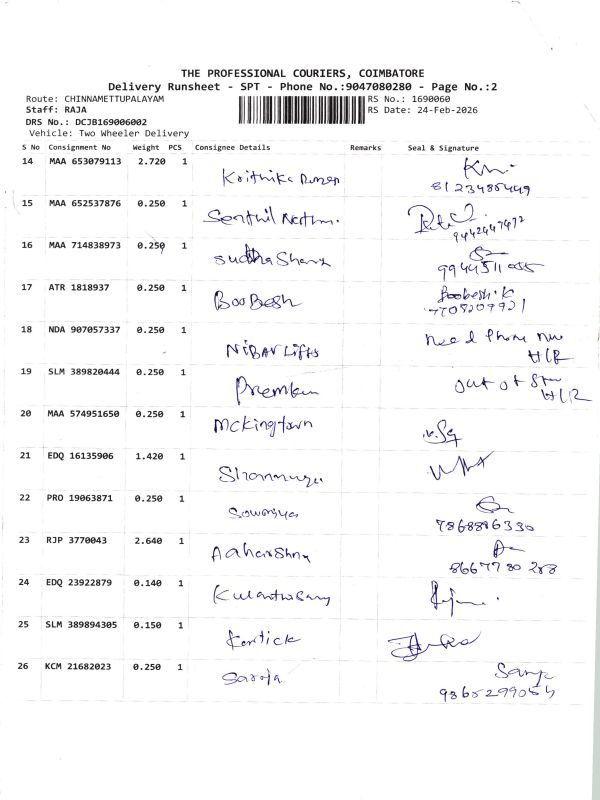 THE PROFESSIONAL COURIERS, COIMBATORE
Delivery Runsheet - SPT - Phone No.:9047080280 - Page No.:2
Route: CHINNAMETTUPALAYAM RS No.: 1690060
Staff: RAJA RS Date: 24-Feb-2026
DRS No.: DCJB169006002
Vehicle: Two Wheeler Delivery
S No Consignment No Weight PCS Consignee Details Remarks Seal & Signature
14 MAA 653079113 2.720 1
Krithika
8123485449
15 MAA 652537876 0.250 1
Senthil
9442447472
16 MAA 714838973 0.250 1
Sudha
9944511055
17 ATR 1818937 0.250 1 Boobesh.K
BooBesh 7708209921
18 NDA 907057337 0.250 1
NiBAV Lifts Need Phone
19 SLM 389820444 0.250 1
out of
20 MAA 574951650 0.250 1
Mckingtown
21 EDQ 16135906 1.420 1
22 PRO 19063871 0.250 1
Sowmya 7868886330
23 RJP 3770043 2.640 1
8667780288
24 EDQ 23922879 0.140 1
25 SLM 389894305 0.150 1
Kartick
26 KCM 21682023 0.250 1
Saroja